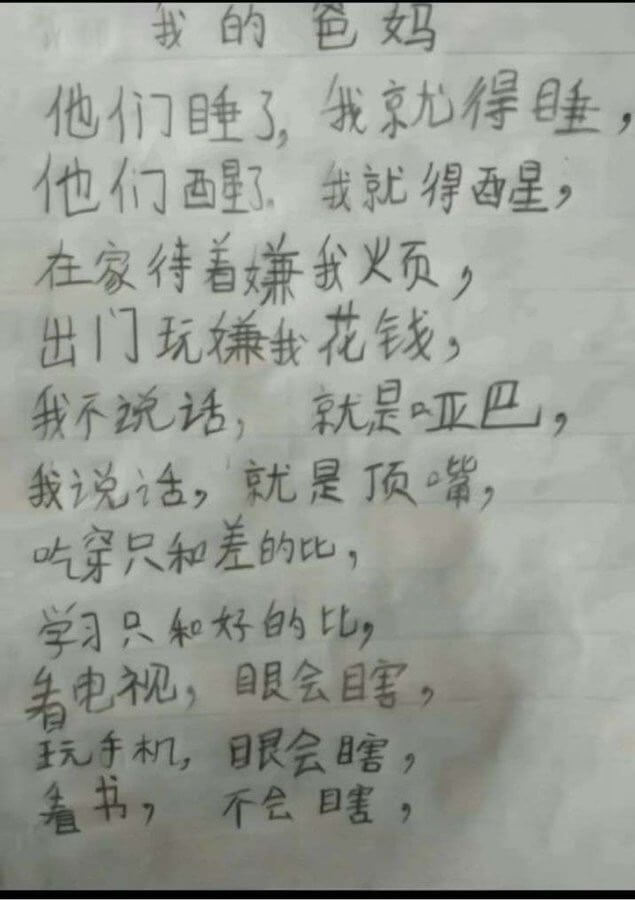 我的爸妈
他们睡了,我就得睡,
他们醒了.我就得醒,
在家待着嫌我烦,
出门玩嫌我花钱,
我不说话,就是哑巴,
我说话,就是顶嘴,
吃穿只和差的比,
学习只和好的比,
看电视,眼会瞎,
玩手机,眼会瞎,
看书,不会瞎,